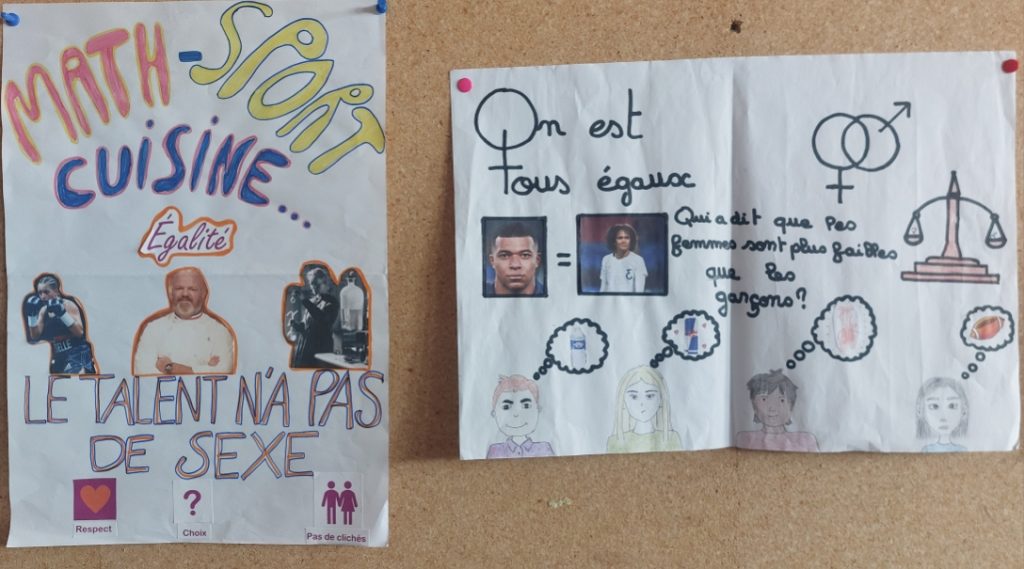 MATH-SPORT
CUISINE...
Égalité
ELLE
LE TALENT N'A PAS
DE SEXE
Respect
?
Choix
Pas de clichés
On est
tous égaux
=
Qui a dit que les
femmes sont plus faibles
que les
garçons?